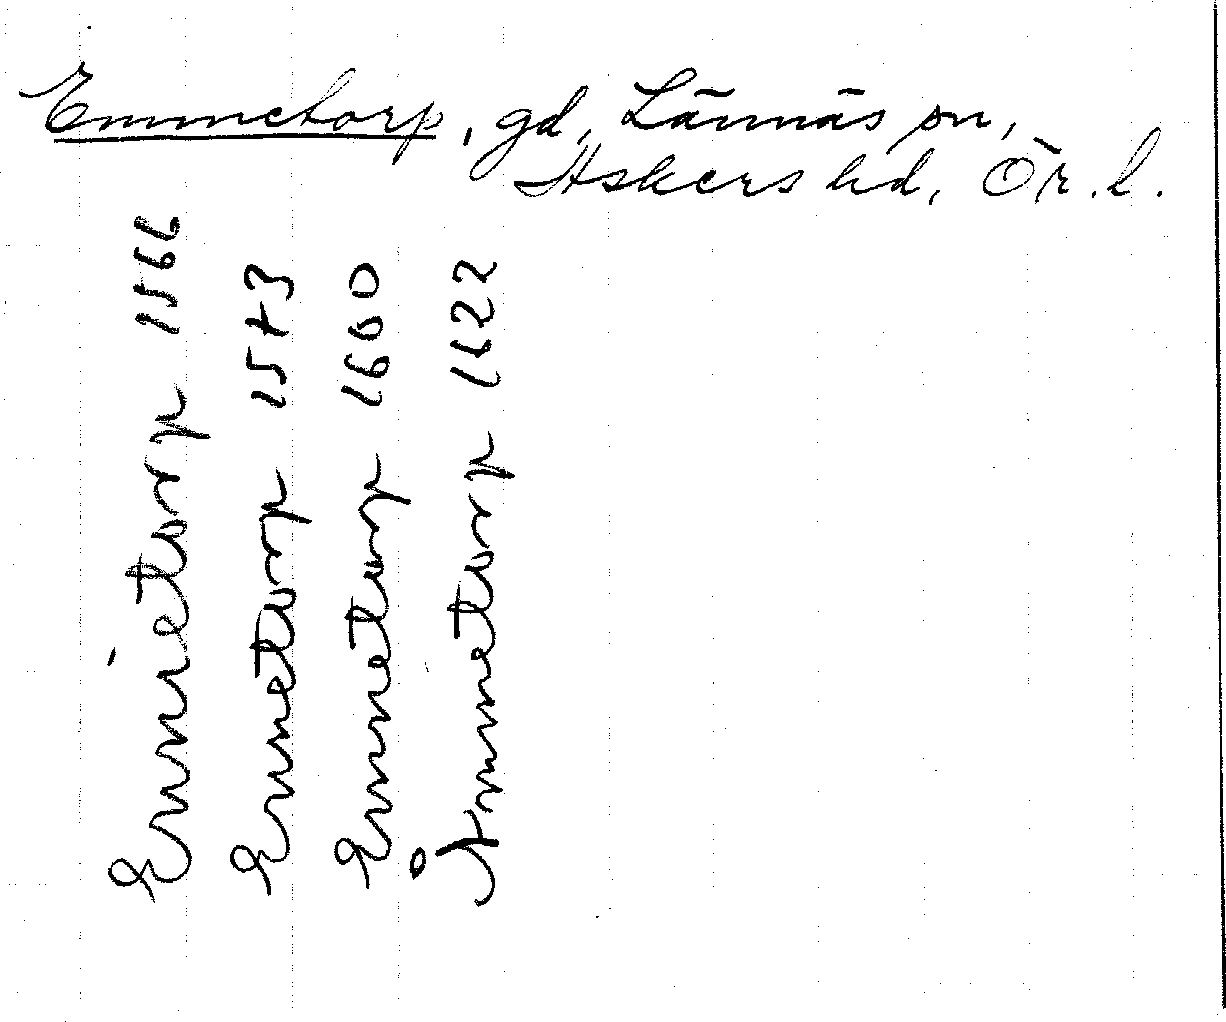 Emmetorp, gd, Lännäs sn,
Askers hd, Ör. l.
Emmetorp 1566
Emmetorp 1573
Emmetorp 1600
Åmmetorp 1622